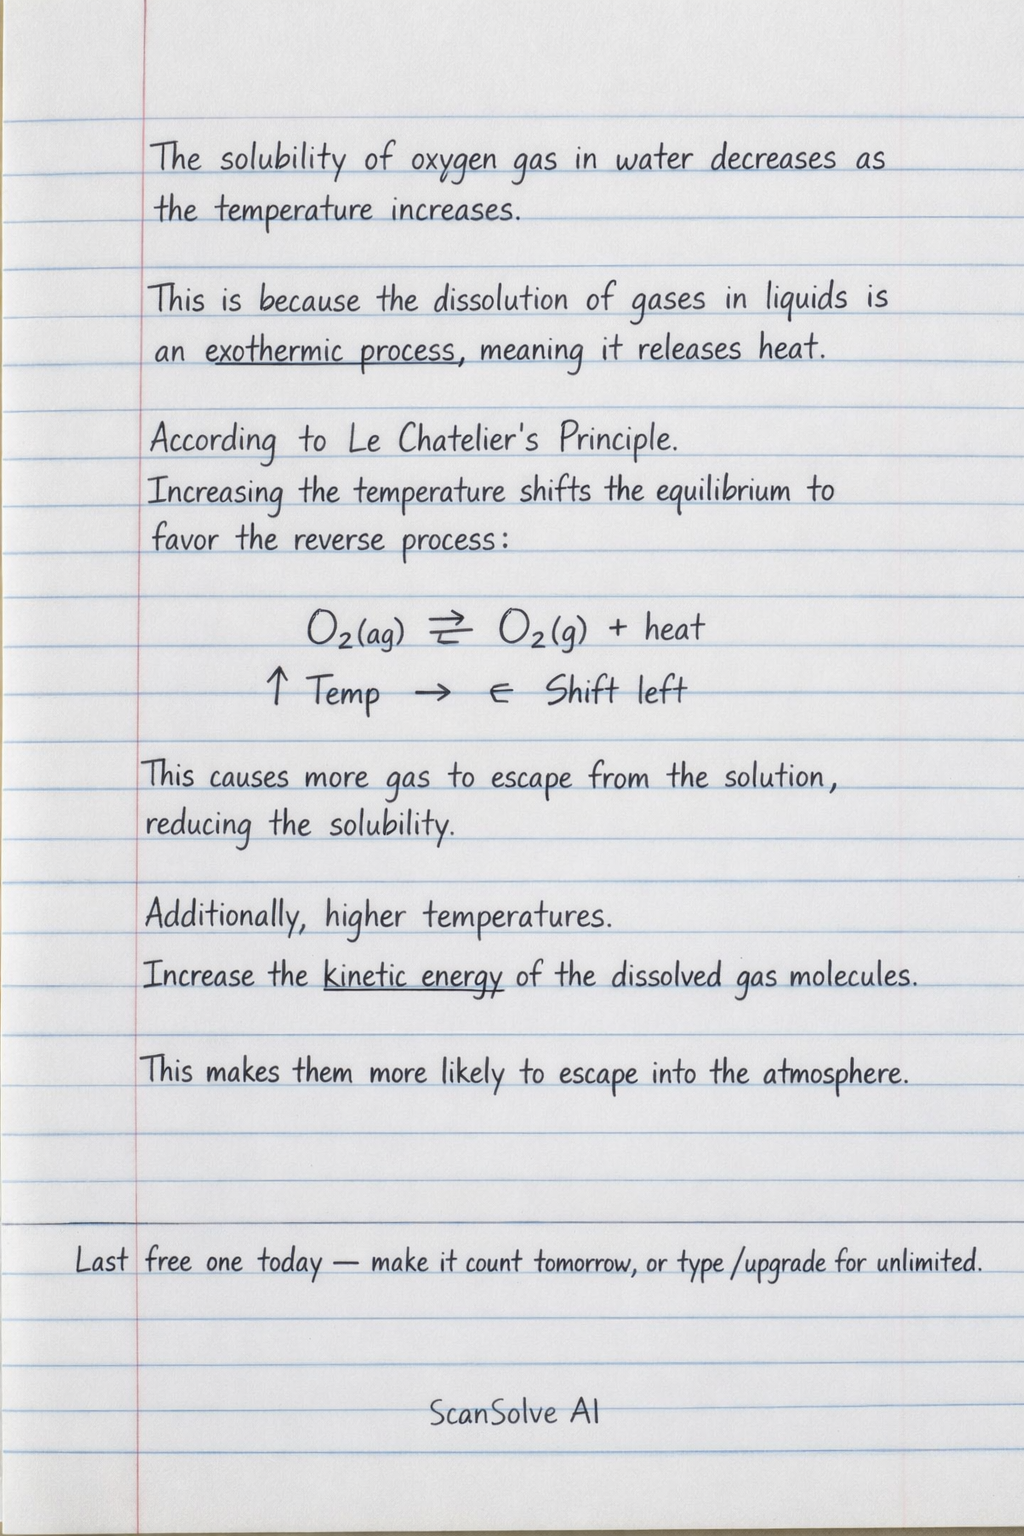 The solubility of oxygen gas in water decreases as
the temperature increases.
This is because the dissolution of gases in liquids is
an exothermic process, meaning it releases heat.
According to Le Chatelier's Principle.
Increasing the temperature shifts the equilibrium to
favor the reverse process:
O₂(ag) ⇌ O₂(g) + heat
↑ Temp → ∈ Shift left
This causes more gas to escape from the solution,
reducing the solubility.
Additionally, higher temperatures.
Increase the kinetic energy of the dissolved gas molecules.
This makes them more likely to escape into the atmosphere.
Last free one today — make it count tomorrow, or type /upgrade for unlimited.
ScanSolve AI